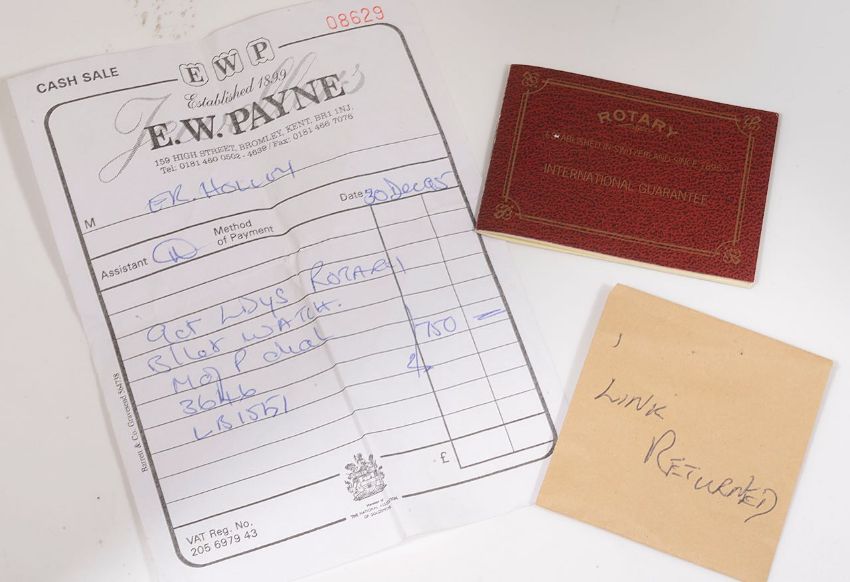 08629
CASH SALE
EWP
Established 1899
Jewellers
E.W. PAYNE
159 HIGH STREET, BROMLEY, KENT, BR1 1NJ.
Tel: 0181 460 0502 - 4639 / Fax: 0181 466 7076
M
Date 30 Dec 95
Assistant
Method
of Payment
9ct LDYS ROTARY
B/let WATCH.
M of P dial
3646
LB1551
750 =
£
VAT Reg. No.
205 6979 43
Member of
THE NATIONAL ASSOCIATION
OF GOLDSMITHS
ROTARY
ESTABLISHED IN SWITZERLAND SINCE 1895
INTERNATIONAL GUARANTEE
1
LINK
RETURNED